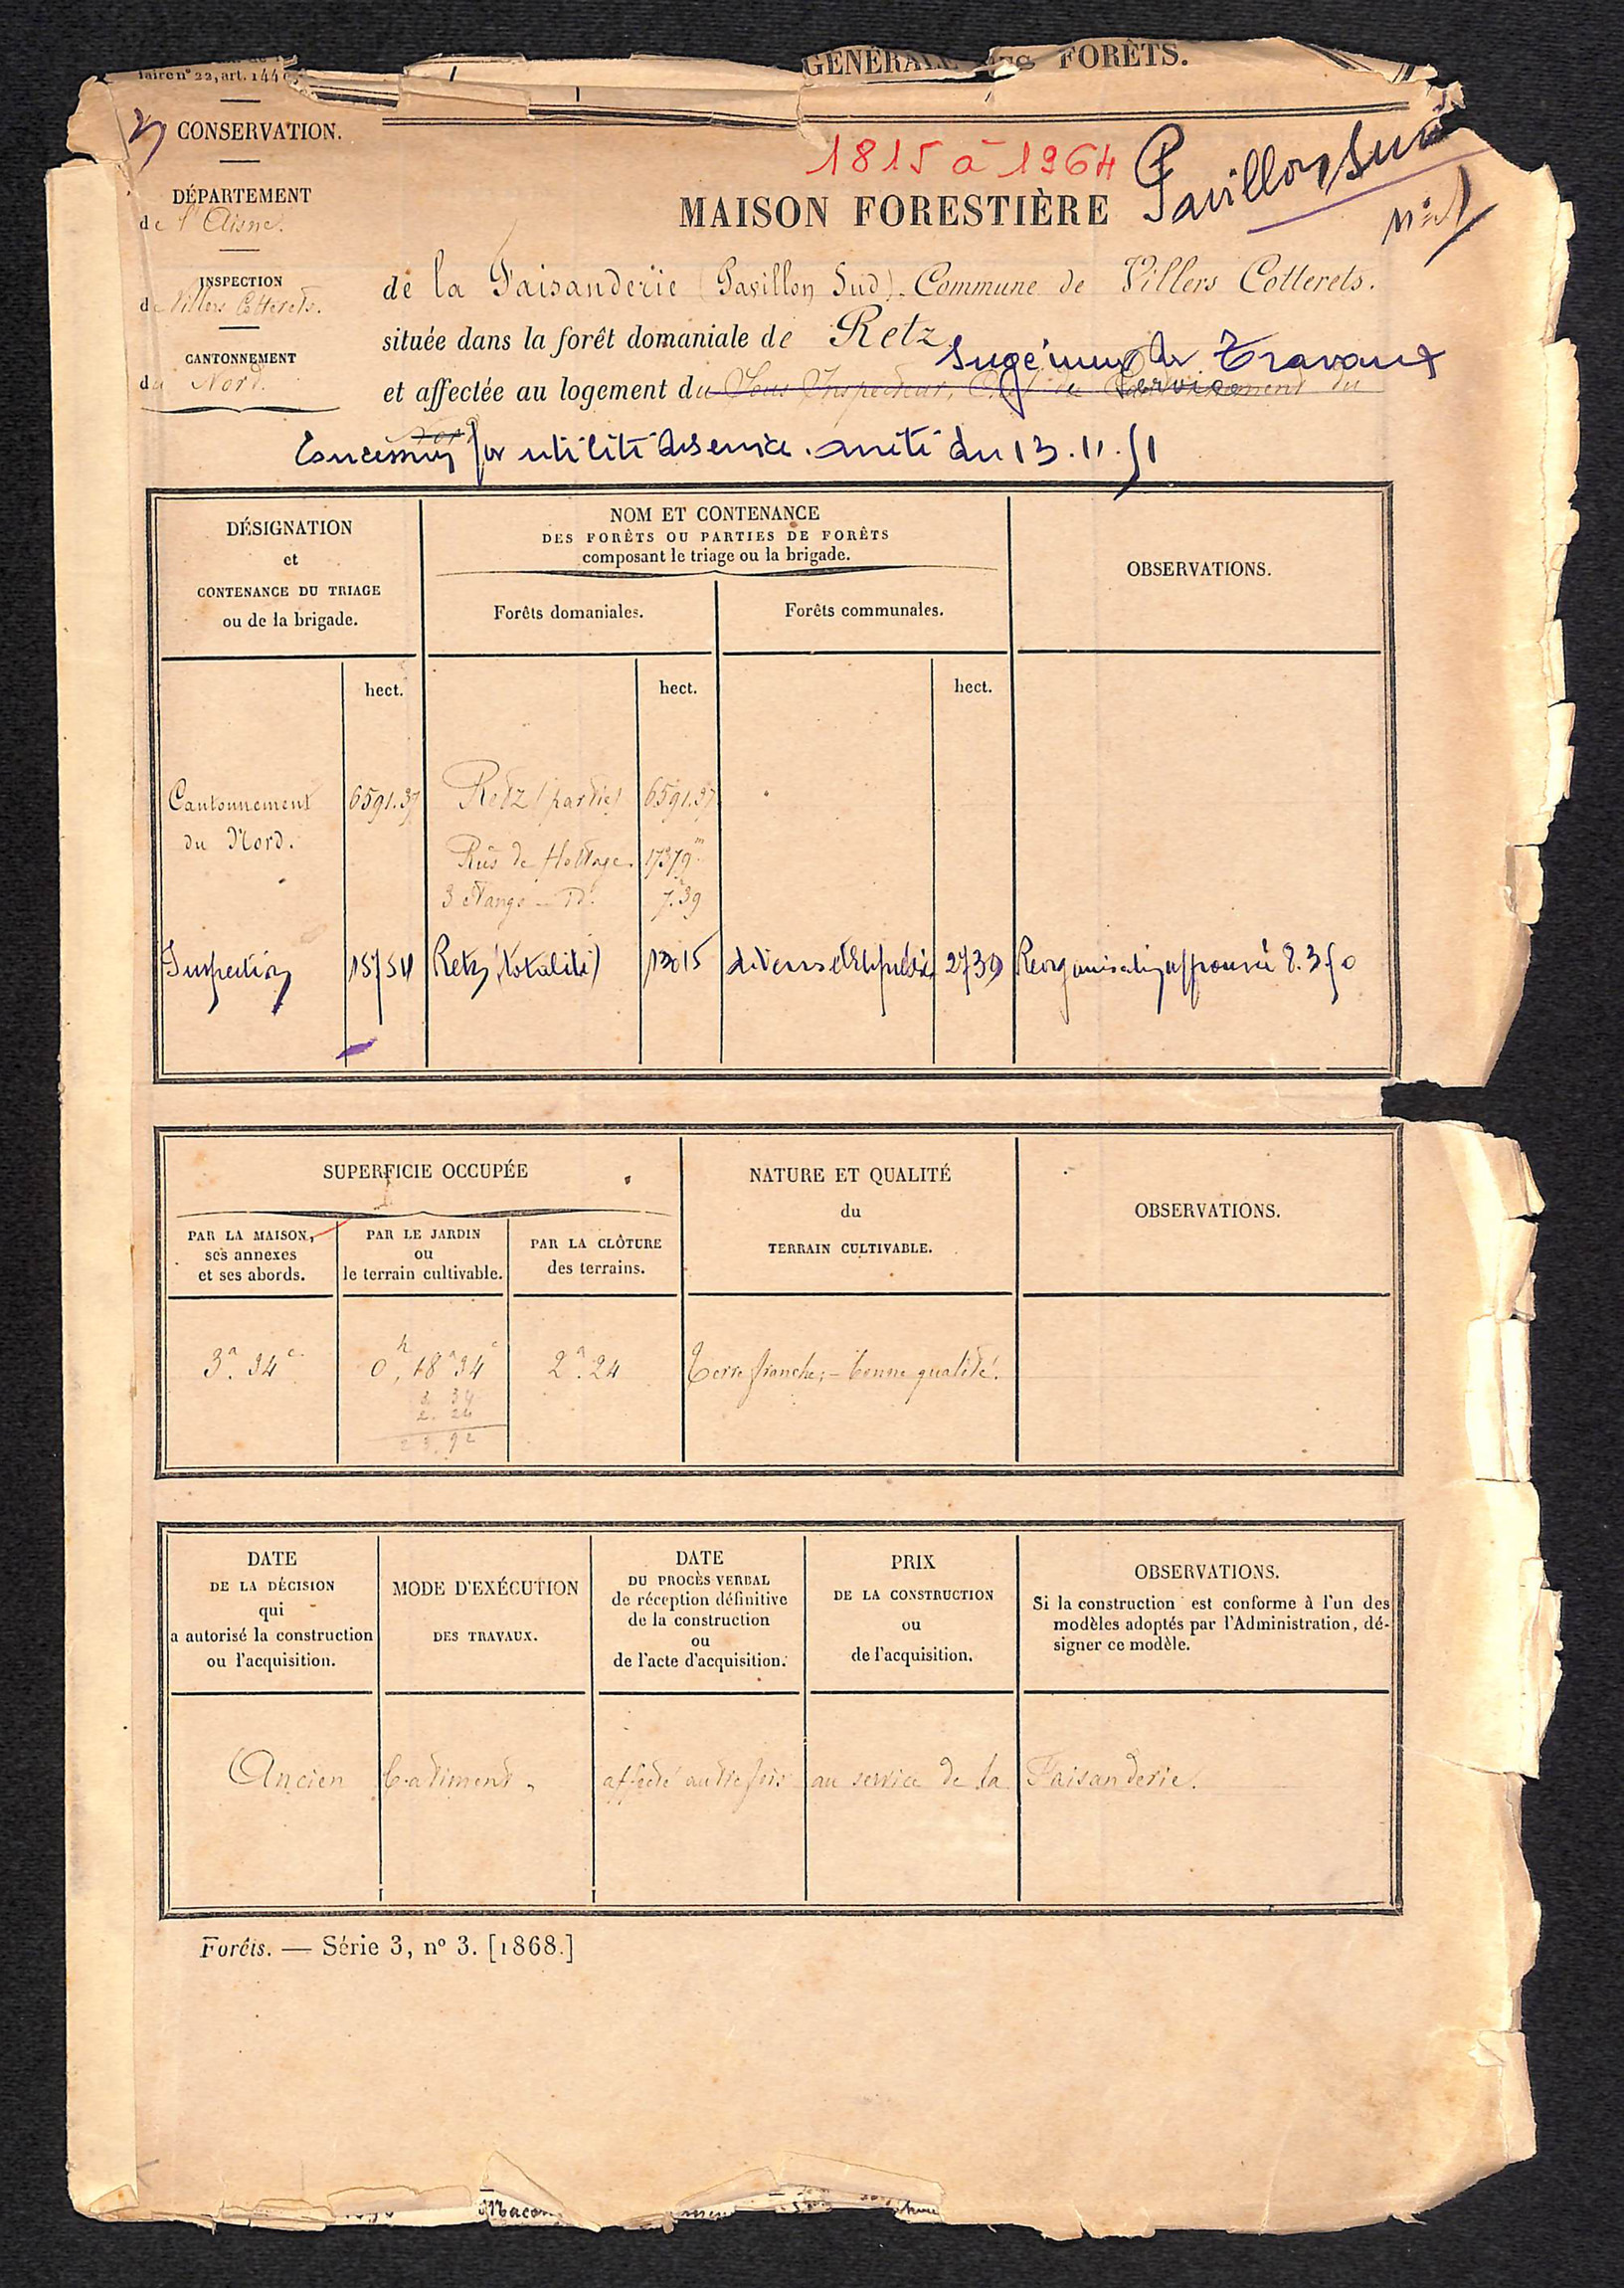 GÉNÉRALE DES FORÊTS.
laire nº 22, art. 144
CONSERVATION.
1815 à 1964
Pavillon Sud
DÉPARTEMENT
de l'Aisne.
MAISON FORESTIÈRE
INSPECTION
de Villers Cotterets.
de la Faisanderie (Pavillon Sud). Commune de Villers Cotterets.
située dans la forêt domaniale de Retz
CANTONNEMENT
du Nord.
Ingénieur de Travaux
et affectée au logement du Sous Inspecteur, Chef du Cantonnement du
service
Nord
Concession par utilité de service. arrêté du 13.11.51
DÉSIGNATION
et
CONTENANCE DU TRIAGE
ou de la brigade.
NOM ET CONTENANCE
DES FORÊTS OU PARTIES DE FORÊTS
composant le triage ou la brigade.
Forêts domaniales.
Forêts communales.
OBSERVATIONS.
hect.
hect.
hect.
Cantonnement 6591.37 Retz (partie) 6591.37
du Nord.
Rûs de flottage. 17379m
3 étangs _ Id. 7.39
Inspection 15754 Retz (totalité) 13015 2739 Réorganisation approuvée 8.3.50
SUPERFICIE OCCUPÉE
PAR LA MAISON,
ses annexes
et ses abords.
PAR LE JARDIN
ou
le terrain cultivable.
PAR LA CLÔTURE
des terrains.
NATURE ET QUALITÉ
du
TERRAIN CULTIVABLE.
OBSERVATIONS.
3a. 34c. 0h, 18a 34c 2a. 24 Terre franche; – bonne qualité.
3 34
2. 24
23.92
DATE
DE LA DÉCISION
qui
a autorisé la construction
ou l'acquisition.
MODE D'EXÉCUTION
DES TRAVAUX.
DATE
DU PROCÈS VERBAL
de réception définitive
de la construction
ou
de l'acte d'acquisition.
PRIX
DE LA CONSTRUCTION
ou
de l'acquisition.
OBSERVATIONS.
Si la construction est conforme à l'un des
modèles adoptés par l'Administration, dé-
signer ce modèle.
Ancien batiment affecté autrefois au service de la Faisanderie.
Forêts. — Série 3, nº 3. [1868.]